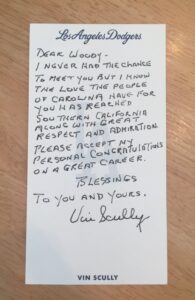 Los Angeles Dodgers
DEAR WOODY-
I NEVER HAD THE CHANCE
TO MEET YOU BUT I KNOW
THE LOVE THE PEOPLE
OF CAROLINA HAVE FOR
YOU HAS REACHED
SOUTHERN CALIFORNIA
ALONG WITH GREAT
RESPECT AND ADMIRATION.
PLEASE ACCEPT MY
PERSONAL CONGRATULATIONS
ON A GREAT CAREER.
BLESSINGS
TO YOU AND YOURS.
Vin Scully
VIN SCULLY